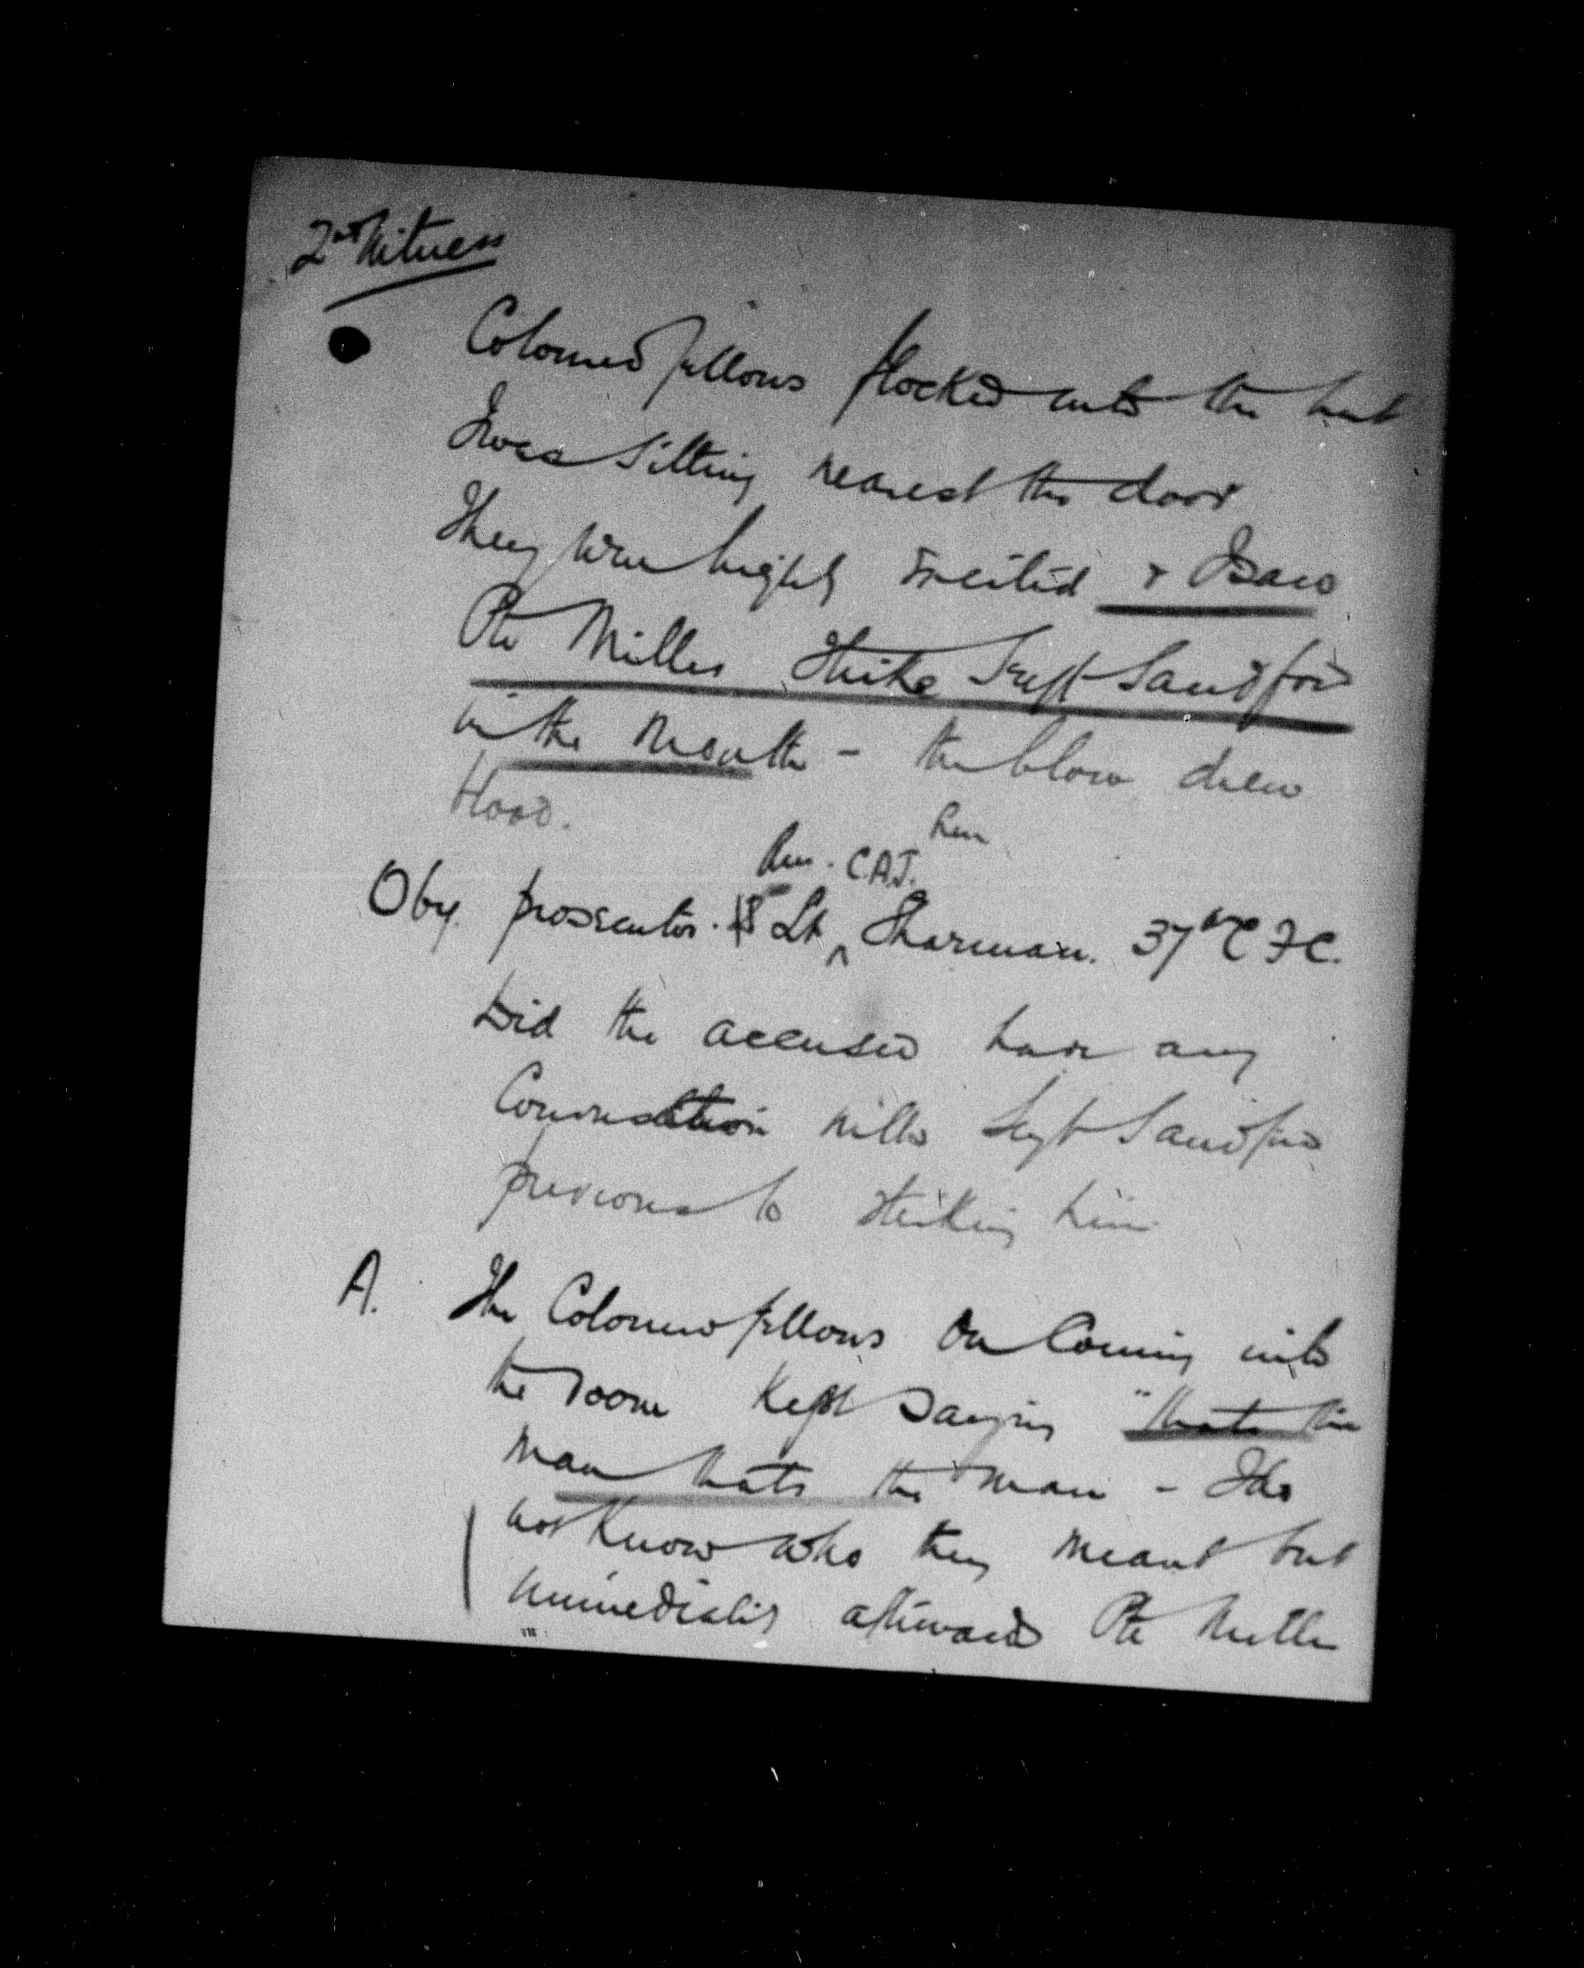 2nd Witness
Coloured fellows flocked into the hut
I was sitting nearest the door
They were highly excited & I saw
Pte Miller strike Sergt Sandford
in the mouth - the blow drew
blood.
Rev. C.A.J.
Q by prosecutor. Lt Sharman. 37th C F C.
Did the accused have any
Conversation with Sergt Sandford
previous to striking him
A. The Coloured fellows on Coming into
the room kept saying "thats the
man thats the man - I do
not know who they meant but
immediately afterwards Pte Miller